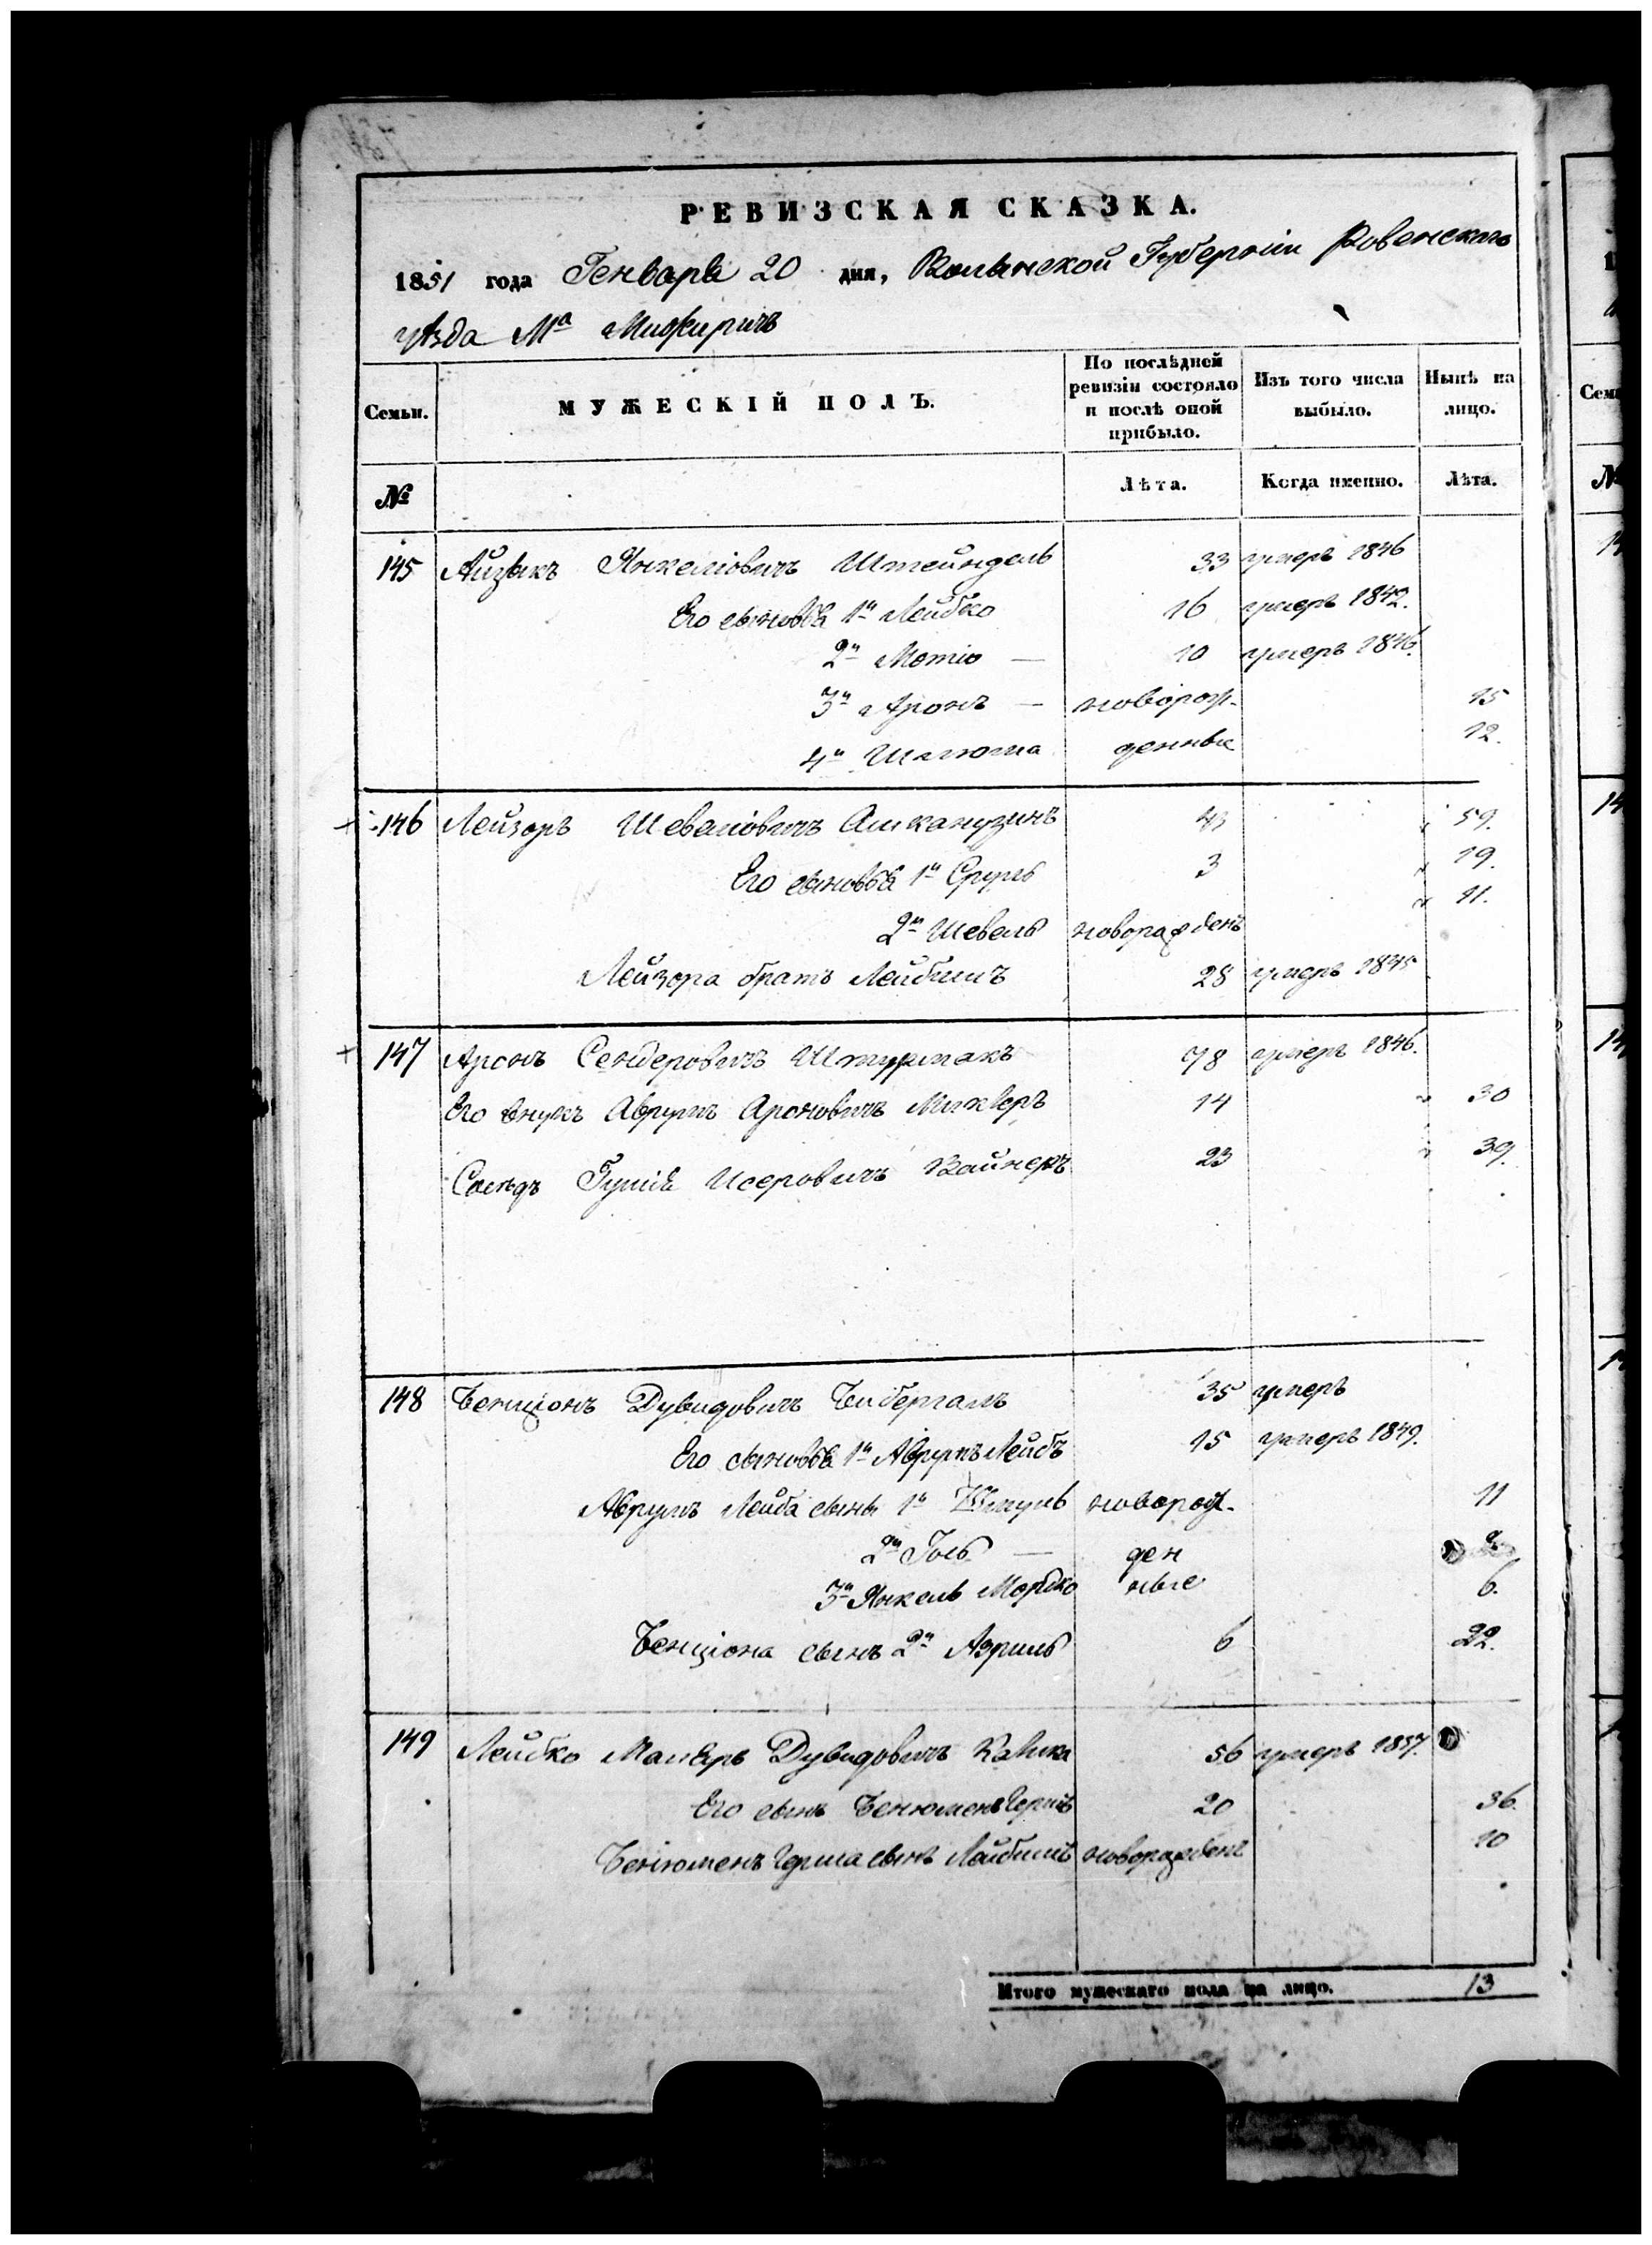 РЕВИЗСКАЯ СКАЗКА.
1851 года Генваря 20 дня, Волынской Губерніи Ровенскаго
уѣзда Ма Межиричъ
Семьи. МУЖЕСКІЙ ПОЛЪ. По послѣдней ревизіи состояло и послѣ оной прибыло. Изъ того числа выбыло. Нынѣ на лицо.
№ Лѣта. Когда именно. Лѣта.
145 Айзыкъ Янкеліовичъ Штейндель 33 умеръ 1846
Его сыновья 1й Лейбко 16 умеръ 1842.
2й Мотіо — 10 умеръ 1846.
3й Аронъ — новорож- 15
4й Шлиома денные 12.
146 Лейзоръ Шевеліовичъ 43 59.
Его сыновья 1й Сруль 3 19.
2й Шевель новорожденъ 11.
Лейзора братъ Лейбишъ 28 умеръ 1845
147 Аронъ Сендеровичъ Штурмакъ 78 умеръ 1846.
Его внукъ Аврумъ Ароновичъ 14 30
Сосѣдъ Исеровичъ Вайнеръ 23 39.
148 Бенціонъ Дувидовичъ 35 умеръ
Его сыновья 1й Аврумъ Лейбъ 15 умеръ 1849.
Аврумъ Лейба сыны 1й Шмуль новорож- 11
2й — ден
3й Янкель Мордко ные 6.
Бенціона сынъ 2й Азриль 6 22.
149 Лейбко Маіеръ Дувидовичъ 56 умеръ 1837.
Его сынъ Бенюменъ Гершъ 20 36.
Беніоменъ Герша сынъ Лейбишъ новорожденъ 10
Итого мужескаго пола на лицо. 13